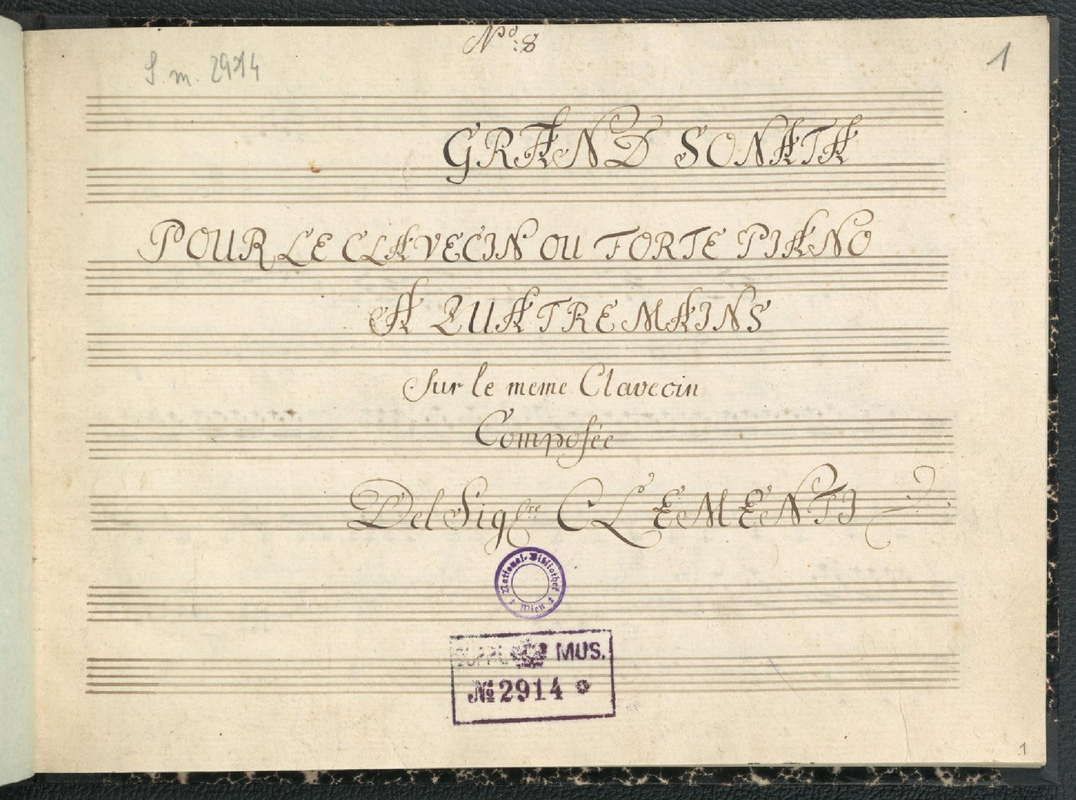 Nº: 8
S. m. 2914
1
GRAND SONATA
POUR LE CLAVECIN OU FORTE PIANO
A QUATRE MAINS
Sur le meme Clavecin
Composée
Del Sigre CLEMENTI
National-Bibliothek
Wien
MUS.
№ 2914
1